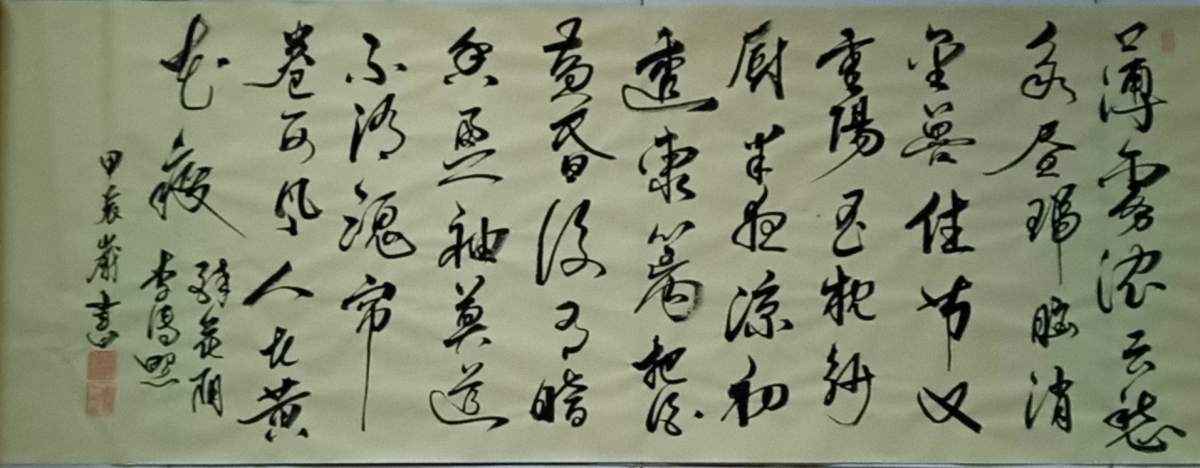 薄雾浓云愁
永昼瑞脑消
金兽佳节又
重陽玉枕纱
厨半夜凉初
透東篱把酒
黄昏後有暗
香盈袖莫道
不消魂帘
卷西风人比黄
花瘦
醉花阴
李清照
甲辰嵗書